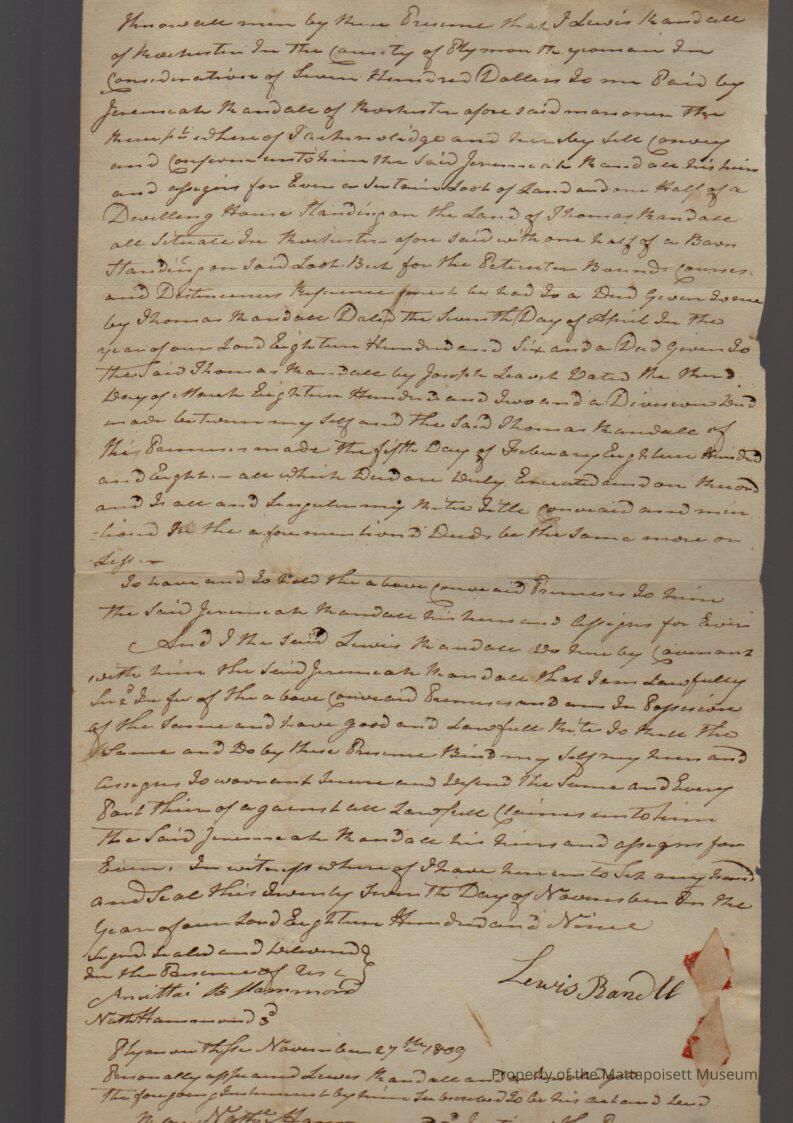 Know all men by these Presence that I Lewis Randall
of Rochester In the County of Plymouth yeoman In
Consideration of Seven Hundred Dollers To me Paid by
Jeremeah Randall of Rochester afore said marioner the
Receipt whereof I acknowlidge and hereby Sell Convey
and Conferm unto him the Said Jeremeah Randall his heirs
and assigns for Ever a Sertain Loot of Land and one Half of a
Dwelling House Standing on the Land of Thomas Randall
all Situate In Rochester afore said with one half of a Barn
Standing on Said Loot But for the Peticuler Bounds Courses
and Distances Referance must be had To a Deed Given To me
by Thomas Randall Dated the Seventh Day of April In the
year of our Lord Eighteen Hundred and Six and a Deed Given To
the Said Thomas Randall by Joseph Leavit Dated the third
Day of March Eighteen Hundred and Two and a Division Deed
made between my Self and the Said Thomas Randall of
this Premises made the fifth Day of February Eighteen Hundred
and Eight all which Deeds are Duly Executed and on Record
and Is all and Singuler my Rite Title Conveaid and men
-tiond In the aforementiond Deeds be the Same more or
Less
To have and To hold the above Conveaid Premeses To him
the Said Jeremeah Randall his heirs and Assigns for Ever
And I the Said Lewis Randall Do hereby Covenant
with him the Said Jeremeah Randall that I am Lawfully
In fee of the above Conveaid Premeses and am In Possesion
of the Same and have good and Lawfull Rite To Sell the
Same and Do by these Presence Bind my Self my heirs and
assigns To warrant Secure and Defend the Same and Every
Part thereof against all Lawfull Claimes unto him
the Said Jeremeah Randall his heirs and assigns for
Ever. In witness whereof I have hereunto Set my hand
and Seal this Twenty Seventh Day of November In the
Year of our Lord Eighteen Hundred and Nine
Signd Sealed and Delivered
In the Presence of us
Lewis Randll
B Hammond
Nath Hammond 3d
Plymouth Ss November 27th 1809
Personally appeared Lewis Randall and
Property of the Mattapoisett Museum
the foregoing Instrument by him Subscribed To be his act and Deed